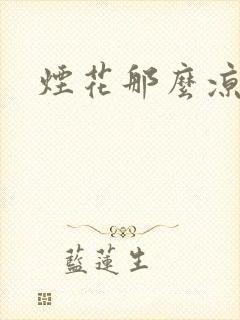 煙花那麼凉
藍蓮生